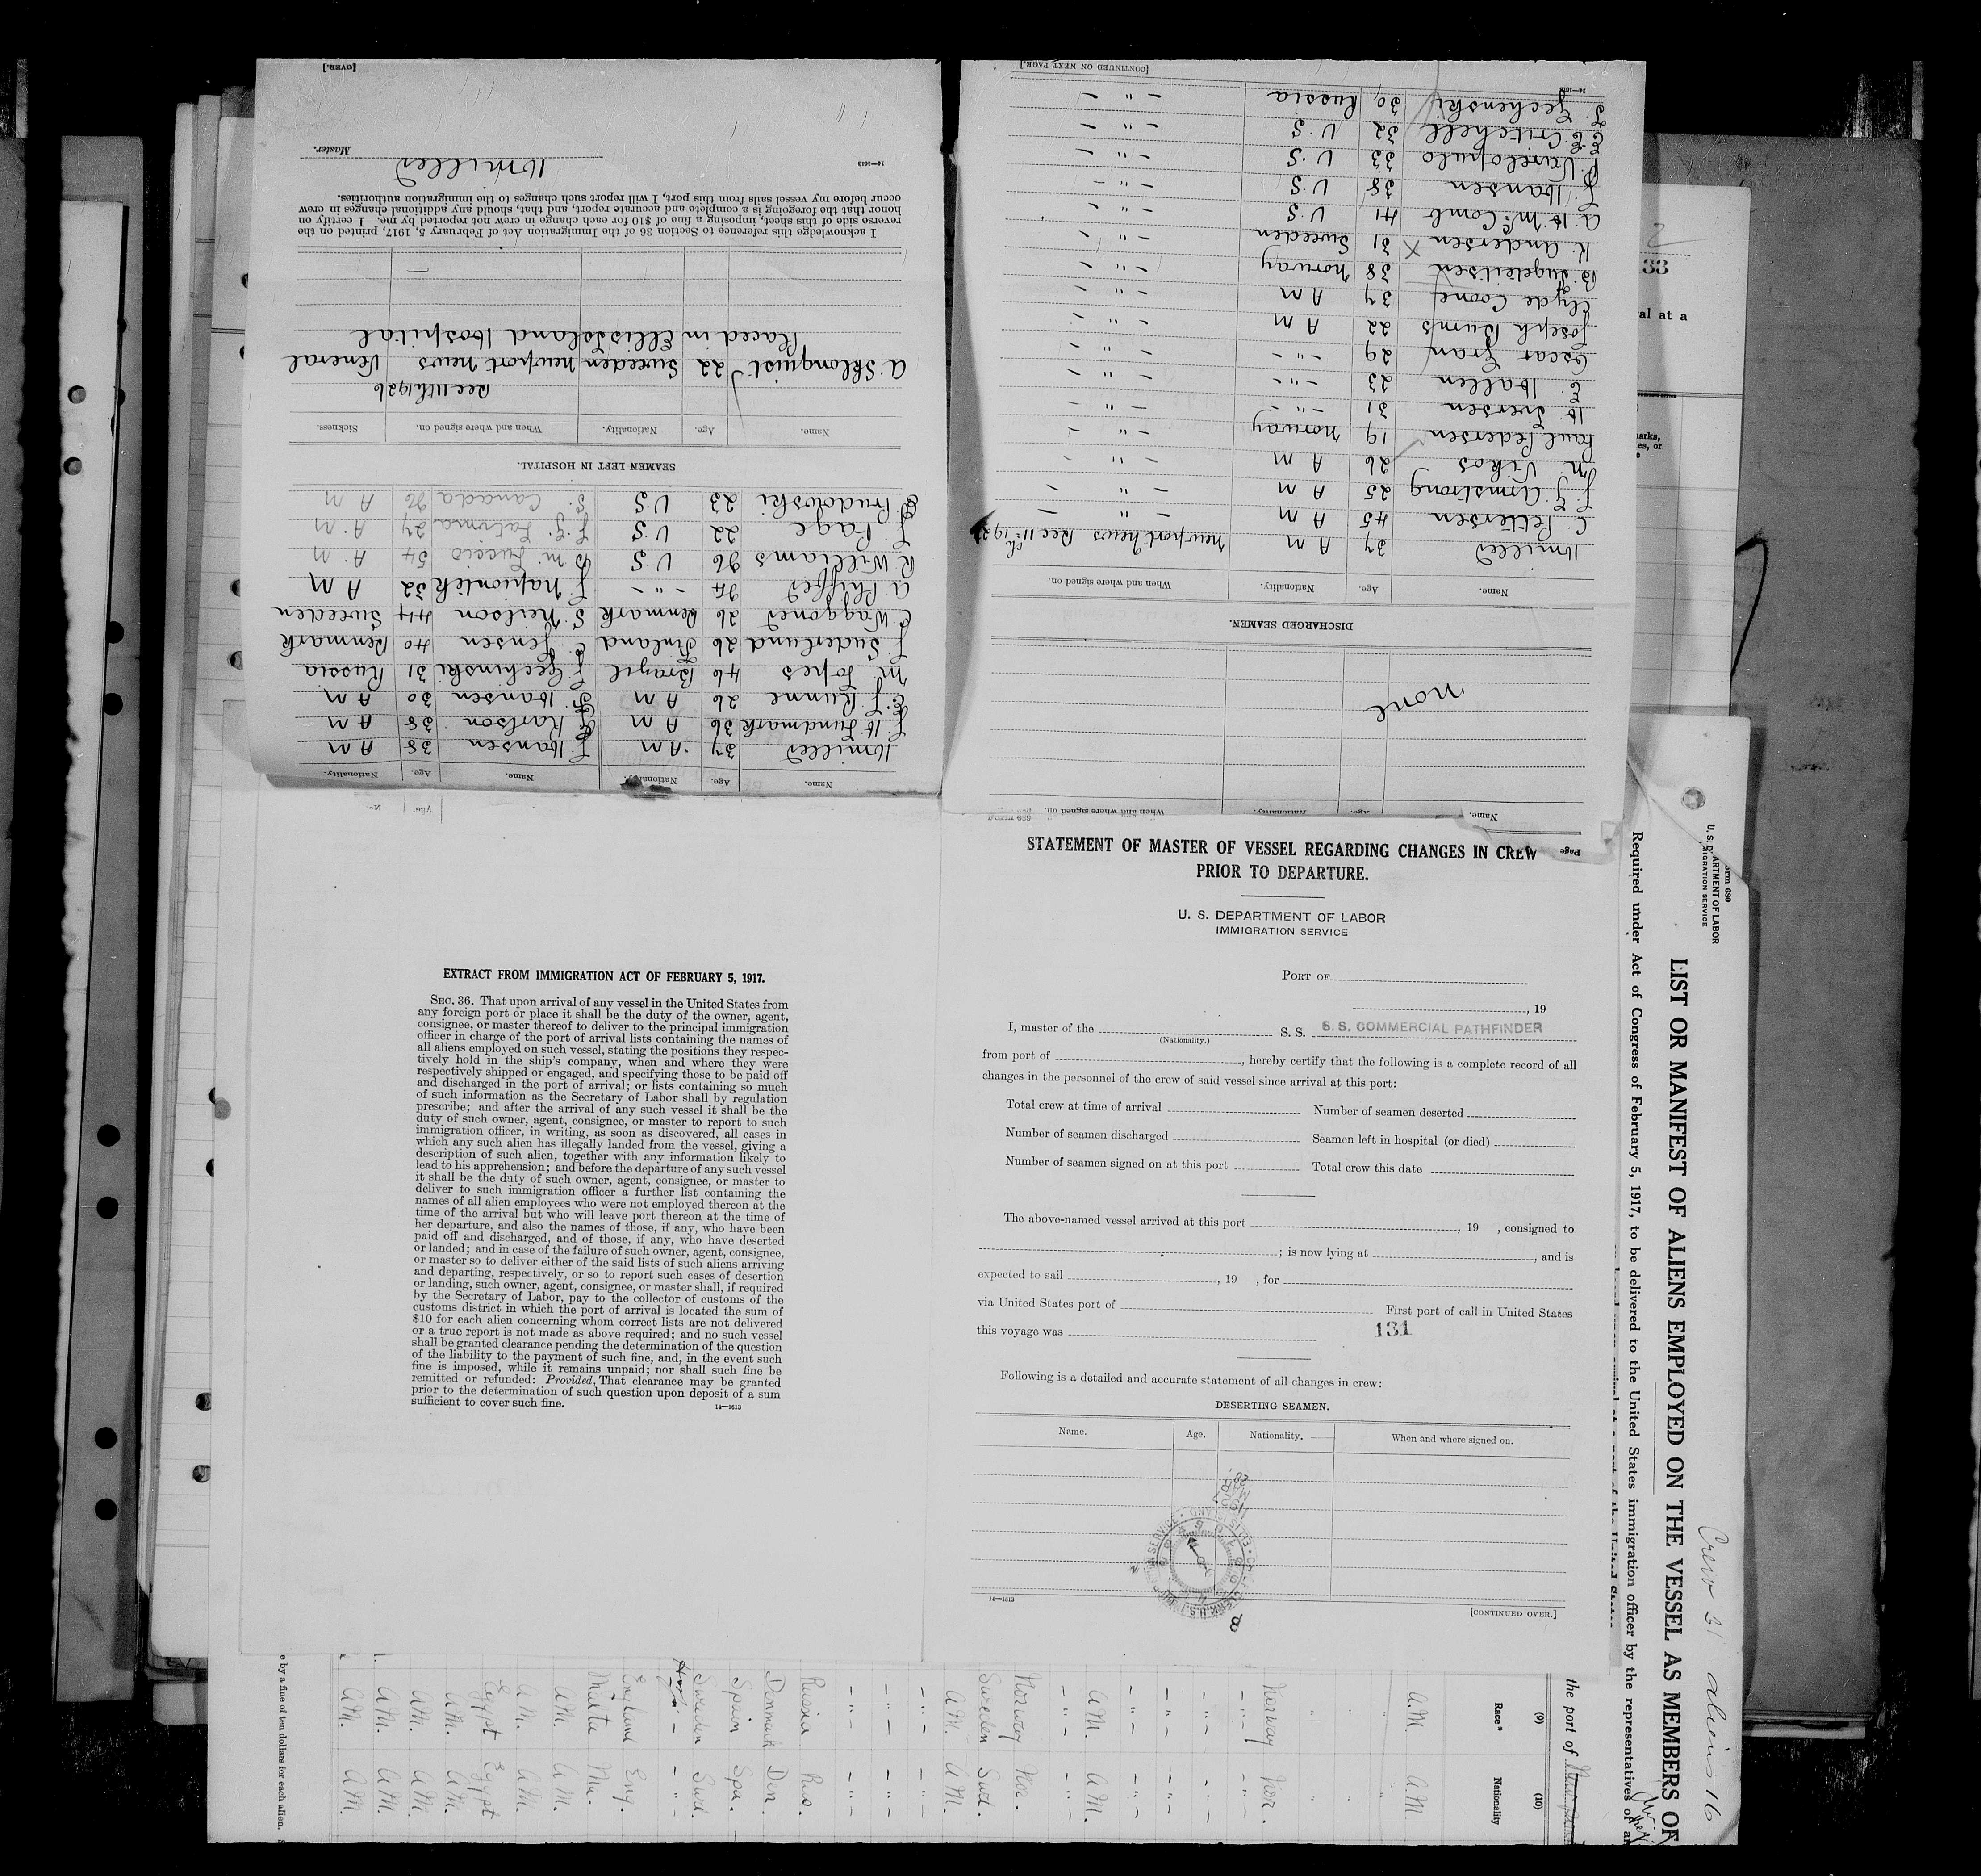 STATEMENT OF MASTER OF VESSEL REGARDING CHANGES IN CREW
PRIOR TO DEPARTURE.
U. S. DEPARTMENT OF LABOR
IMMIGRATION SERVICE
PORT OF
, 19
I, master of the S. S. S. S. COMMERCIAL PATHFINDER
(Nationality.)
from port of , hereby certify that the following is a complete record of all
changes in the personnel of the crew of said vessel since arrival at this port:
Total crew at time of arrival Number of seamen deserted
Number of seamen discharged Seamen left in hospital (or died)
Number of seamen signed on at this port Total crew this date
The above-named vessel arrived at this port , 19 , consigned to
; is now lying at , and is
expected to sail , 19 , for
via United States port of First port of call in United States
this voyage was 131
Following is a detailed and accurate statement of all changes in crew:
DESERTING SEAMEN.
Name. Age. Nationality. When and where signed on.
14—1613 [CONTINUED OVER.]
EXTRACT FROM IMMIGRATION ACT OF FEBRUARY 5, 1917.
SEC. 36. That upon arrival of any vessel in the United States from
any foreign port or place it shall be the duty of the owner, agent,
consignee, or master thereof to deliver to the principal immigration
officer in charge of the port of arrival lists containing the names of
all aliens employed on such vessel, stating the positions they respec-
tively hold in the ship's company, when and where they were
respectively shipped or engaged, and specifying those to be paid off
and discharged in the port of arrival; or lists containing so much
of such information as the Secretary of Labor shall by regulation
prescribe; and after the arrival of any such vessel it shall be the
duty of such owner, agent, consignee, or master to report to such
immigration officer, in writing, as soon as discovered, all cases in
which any such alien has illegally landed from the vessel, giving a
description of such alien, together with any information likely to
lead to his apprehension; and before the departure of any such vessel
it shall be the duty of such owner, agent, consignee, or master to
deliver to such immigration officer a further list containing the
names of all alien employees who were not employed thereon at the
time of the arrival but who will leave port thereon at the time of
her departure, and also the names of those, if any, who have been
paid off and discharged, and of those, if any, who have deserted
or landed; and in case of the failure of such owner, agent, consignee,
or master so to deliver either of the said lists of such aliens arriving
and departing, respectively, or so to report such cases of desertion
or landing, such owner, agent, consignee, or master shall, if required
by the Secretary of Labor, pay to the collector of customs of the
customs district in which the port of arrival is located the sum of
$10 for each alien concerning whom correct lists are not delivered
or a true report is not made as above required; and no such vessel
shall be granted clearance pending the determination of the question
of the liability to the payment of such fine, and, in the event such
fine is imposed, while it remains unpaid; nor shall such fine be
remitted or refunded: Provided, That clearance may be granted
prior to the determination of such question upon deposit of a sum
sufficient to cover such fine.
14—1613
Page
Name. Age. Nationality. When and where signed on.
none
DISCHARGED SEAMEN.
Name. Age. Nationality. When and where signed on.
H Miller 37 A M Newport News Dec 11th
C. Pettersen 45 A M - " -
J. J. Armstrong 25 A M - " -
M. Vikos 26 A M - " -
Paul Pedersen 19 Norway - " -
H. Iversen 31 - " - - " -
E. Hallen 23 - " - - " -
Oscar Gran 29 - " - - " -
Joseph Burns 22 A M - " -
Clyde Coone 37 A M - " -
B. Ingebretsen 38 Norway - " -
K Andersen 31 Sweeden - " -
A. H. McComb 41 U.S - " -
J. Hansen 38 U.S - " -
P. Vasilopulo 33 U.S - " -
E E Critchell 32 U.S - " -
J. Zechenski 30 Russia - " -
14—1613
[CONTINUED ON NEXT PAGE.]
Name. Age. Nationality. Name. Age. Nationality.
H Miller 37 A M J. Hansen 38 A M
J. H Lundmark 36 A M Karlson 38 A M
E. J. Kunne 26 A M F. Hansen 30 A M
M Lopes 46 Brazil J Zechinski 31 Russia
J. Suderlund 26 Finland C. Jensen 40 Denmark
C. Waggoner 26 Denmark S. Neilson 44 Sweeden
A Phiffer - " - J. Napionlek 32 A M
R Williams 36 U S
J. Page 22 U S
Prudowski 23 U S S. Canada 26 A M
SEAMEN LEFT IN HOSPITAL.
Name. Age. Nationality. When and where signed on. Sickness.
Dec 11th 1926
A. Sklonquist 22 Sweeden Newport News Veneral
Placed in Ellis Island Hospital
I acknowledge this reference to Section 36 of the Immigration Act of February 5, 1917, printed on the
reverse side of this sheet, imposing a fine of $10 for each change in crew not reported by me. I certify on
honor that the foregoing is a complete and accurate report, and that, should any additional changes in crew
occur before my vessel sails from this port, I will report such changes to the immigration authorities.
H Miller
14—1613 Master.
[OVER.]
U. S. DEPARTMENT OF LABOR
IMMIGRATION SERVICE
LIST OR MANIFEST OF ALIENS EMPLOYED ON THE VESSEL AS MEMBERS OF
Required under Act of Congress of February 5, 1917, to be delivered to the United States immigration officer by the representatives of
Crew 31 aliens 16
the port of
(9) (10)
Race* Nationality
A.M. A.M.
Norway Nor.
- " - - " -
- " - - " -
- " - - " -
- " - - " -
A.M. A.M.
- " - - " -
Norway Nor.
Sweden Swd.
A.M. A.M.
- " - - " -
- " - - " -
- " - - " -
Russia Rus.
Denmark Den.
Spain Spa.
Sweden Swd.
England Eng.
Malta Ma.
A.M. A.M.
A.M. A.M.
Egypt Egypt
A.M. A.M.
A.M. A.M.
A.M. A.M.
A.M. A.M.
e by a fine of ten dollars for each alien.
33
al at a